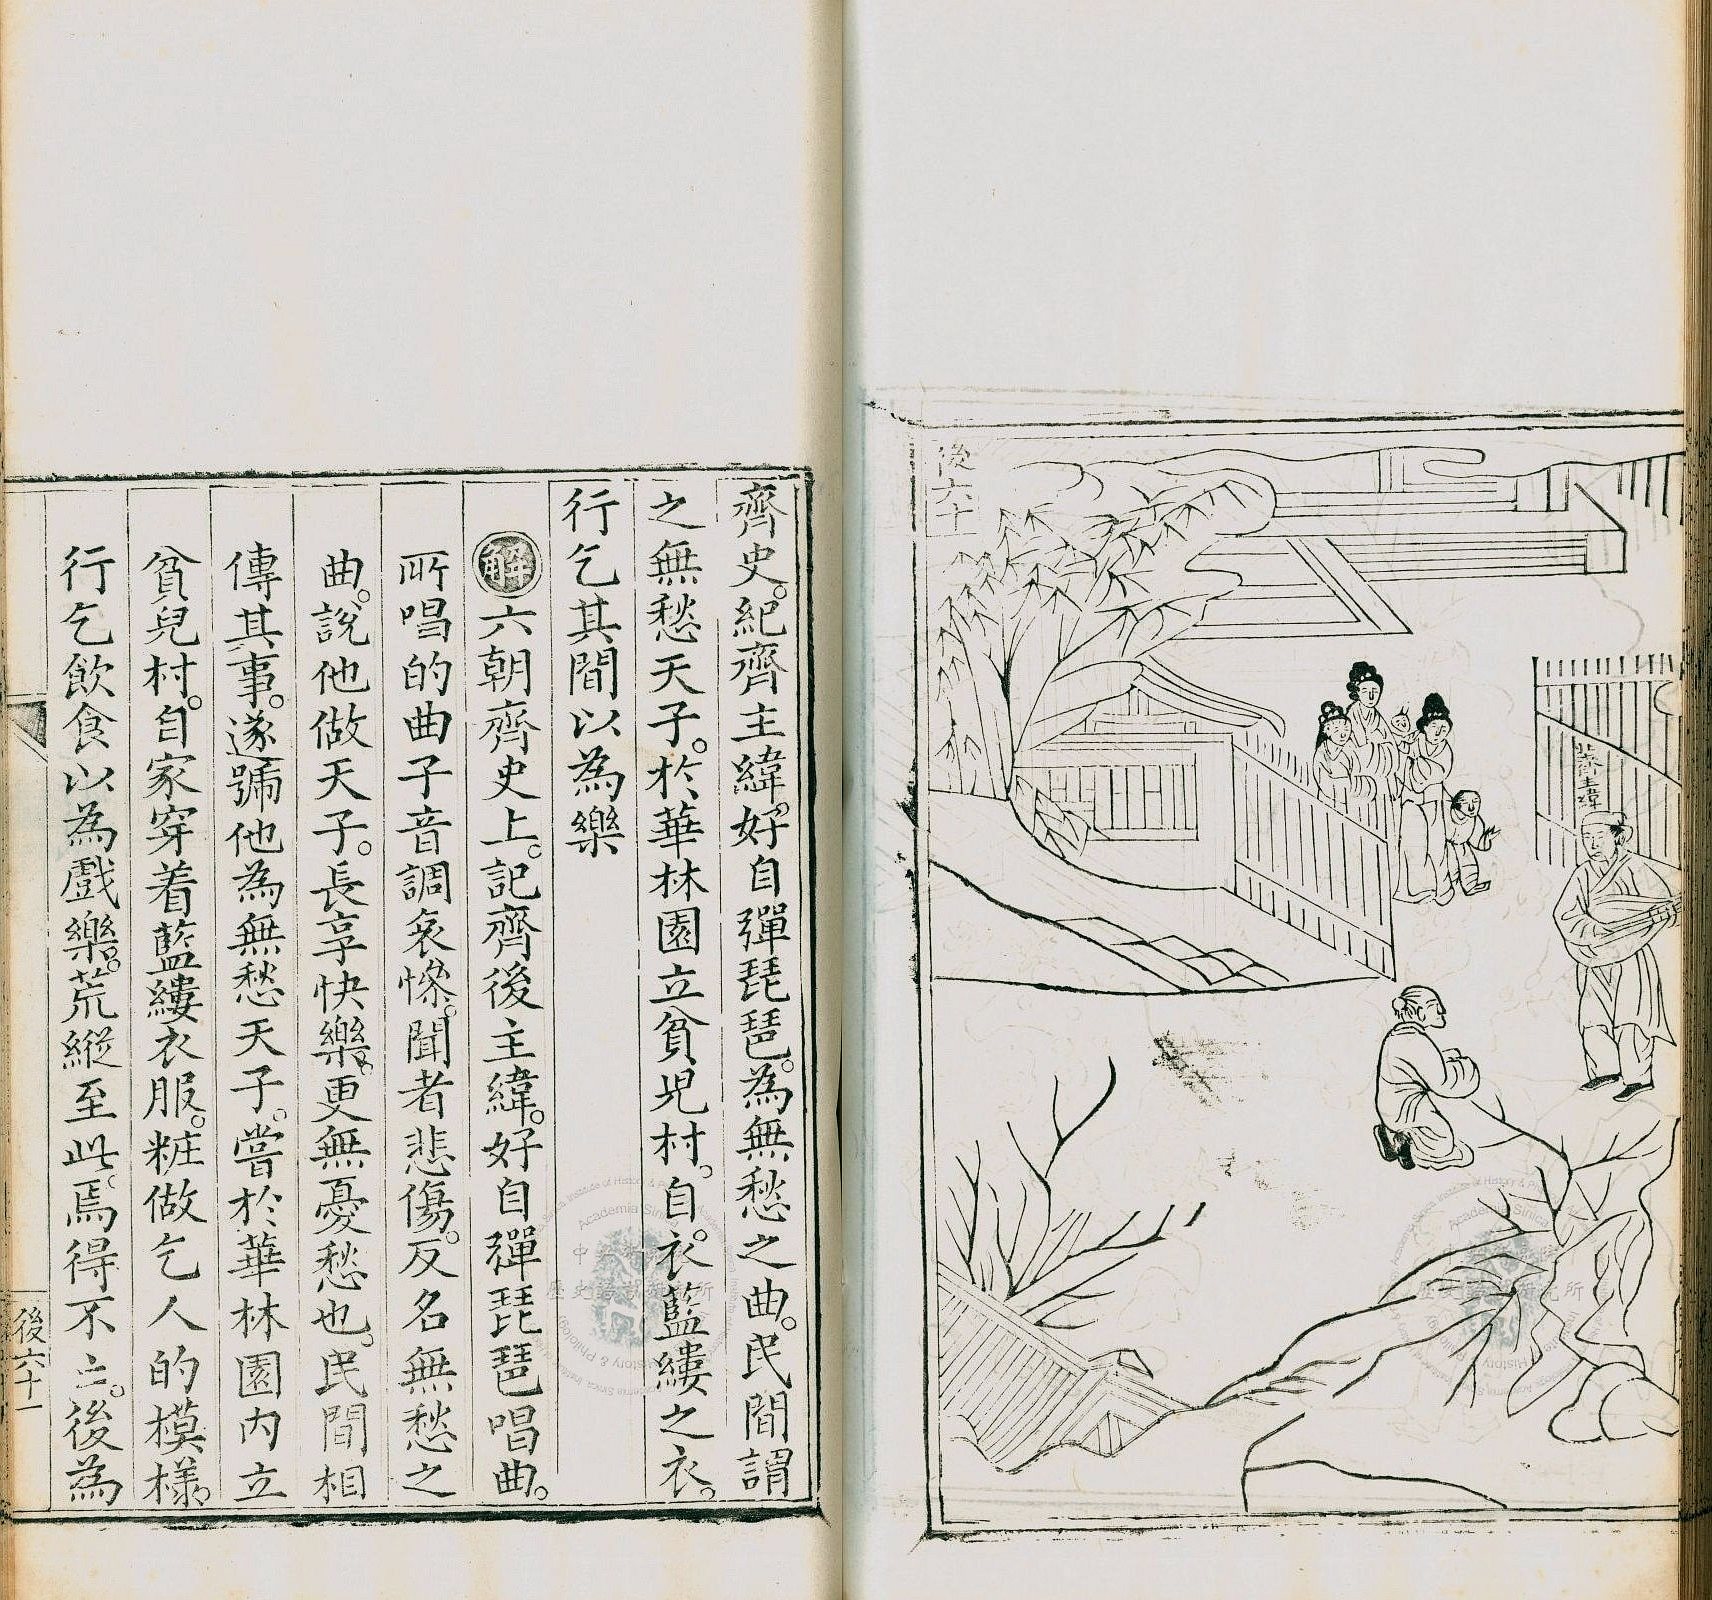 後六十
齊主緯
齊史。紀齊主緯。好自彈琵琶。為無愁之曲。民間謂
之無愁天子。於華林園立貧児村。自。衣藍縷之衣。
行乞其間以為樂
解六朝齊史上。記齊後主緯。好自彈琵琶唱曲。
所唱的曲子音調哀慘。聞者悲傷。反名無愁之
曲。說他做天子。長享快樂。更無憂愁也。民間相
傳其事。遂號他為無愁天子。嘗於華林園內立
貧兒村。自家穿着藍縷衣服。粧做乞人的模樣。
行乞飲食以為戲樂。荒縱至此。焉得不亡。後為
後六十一